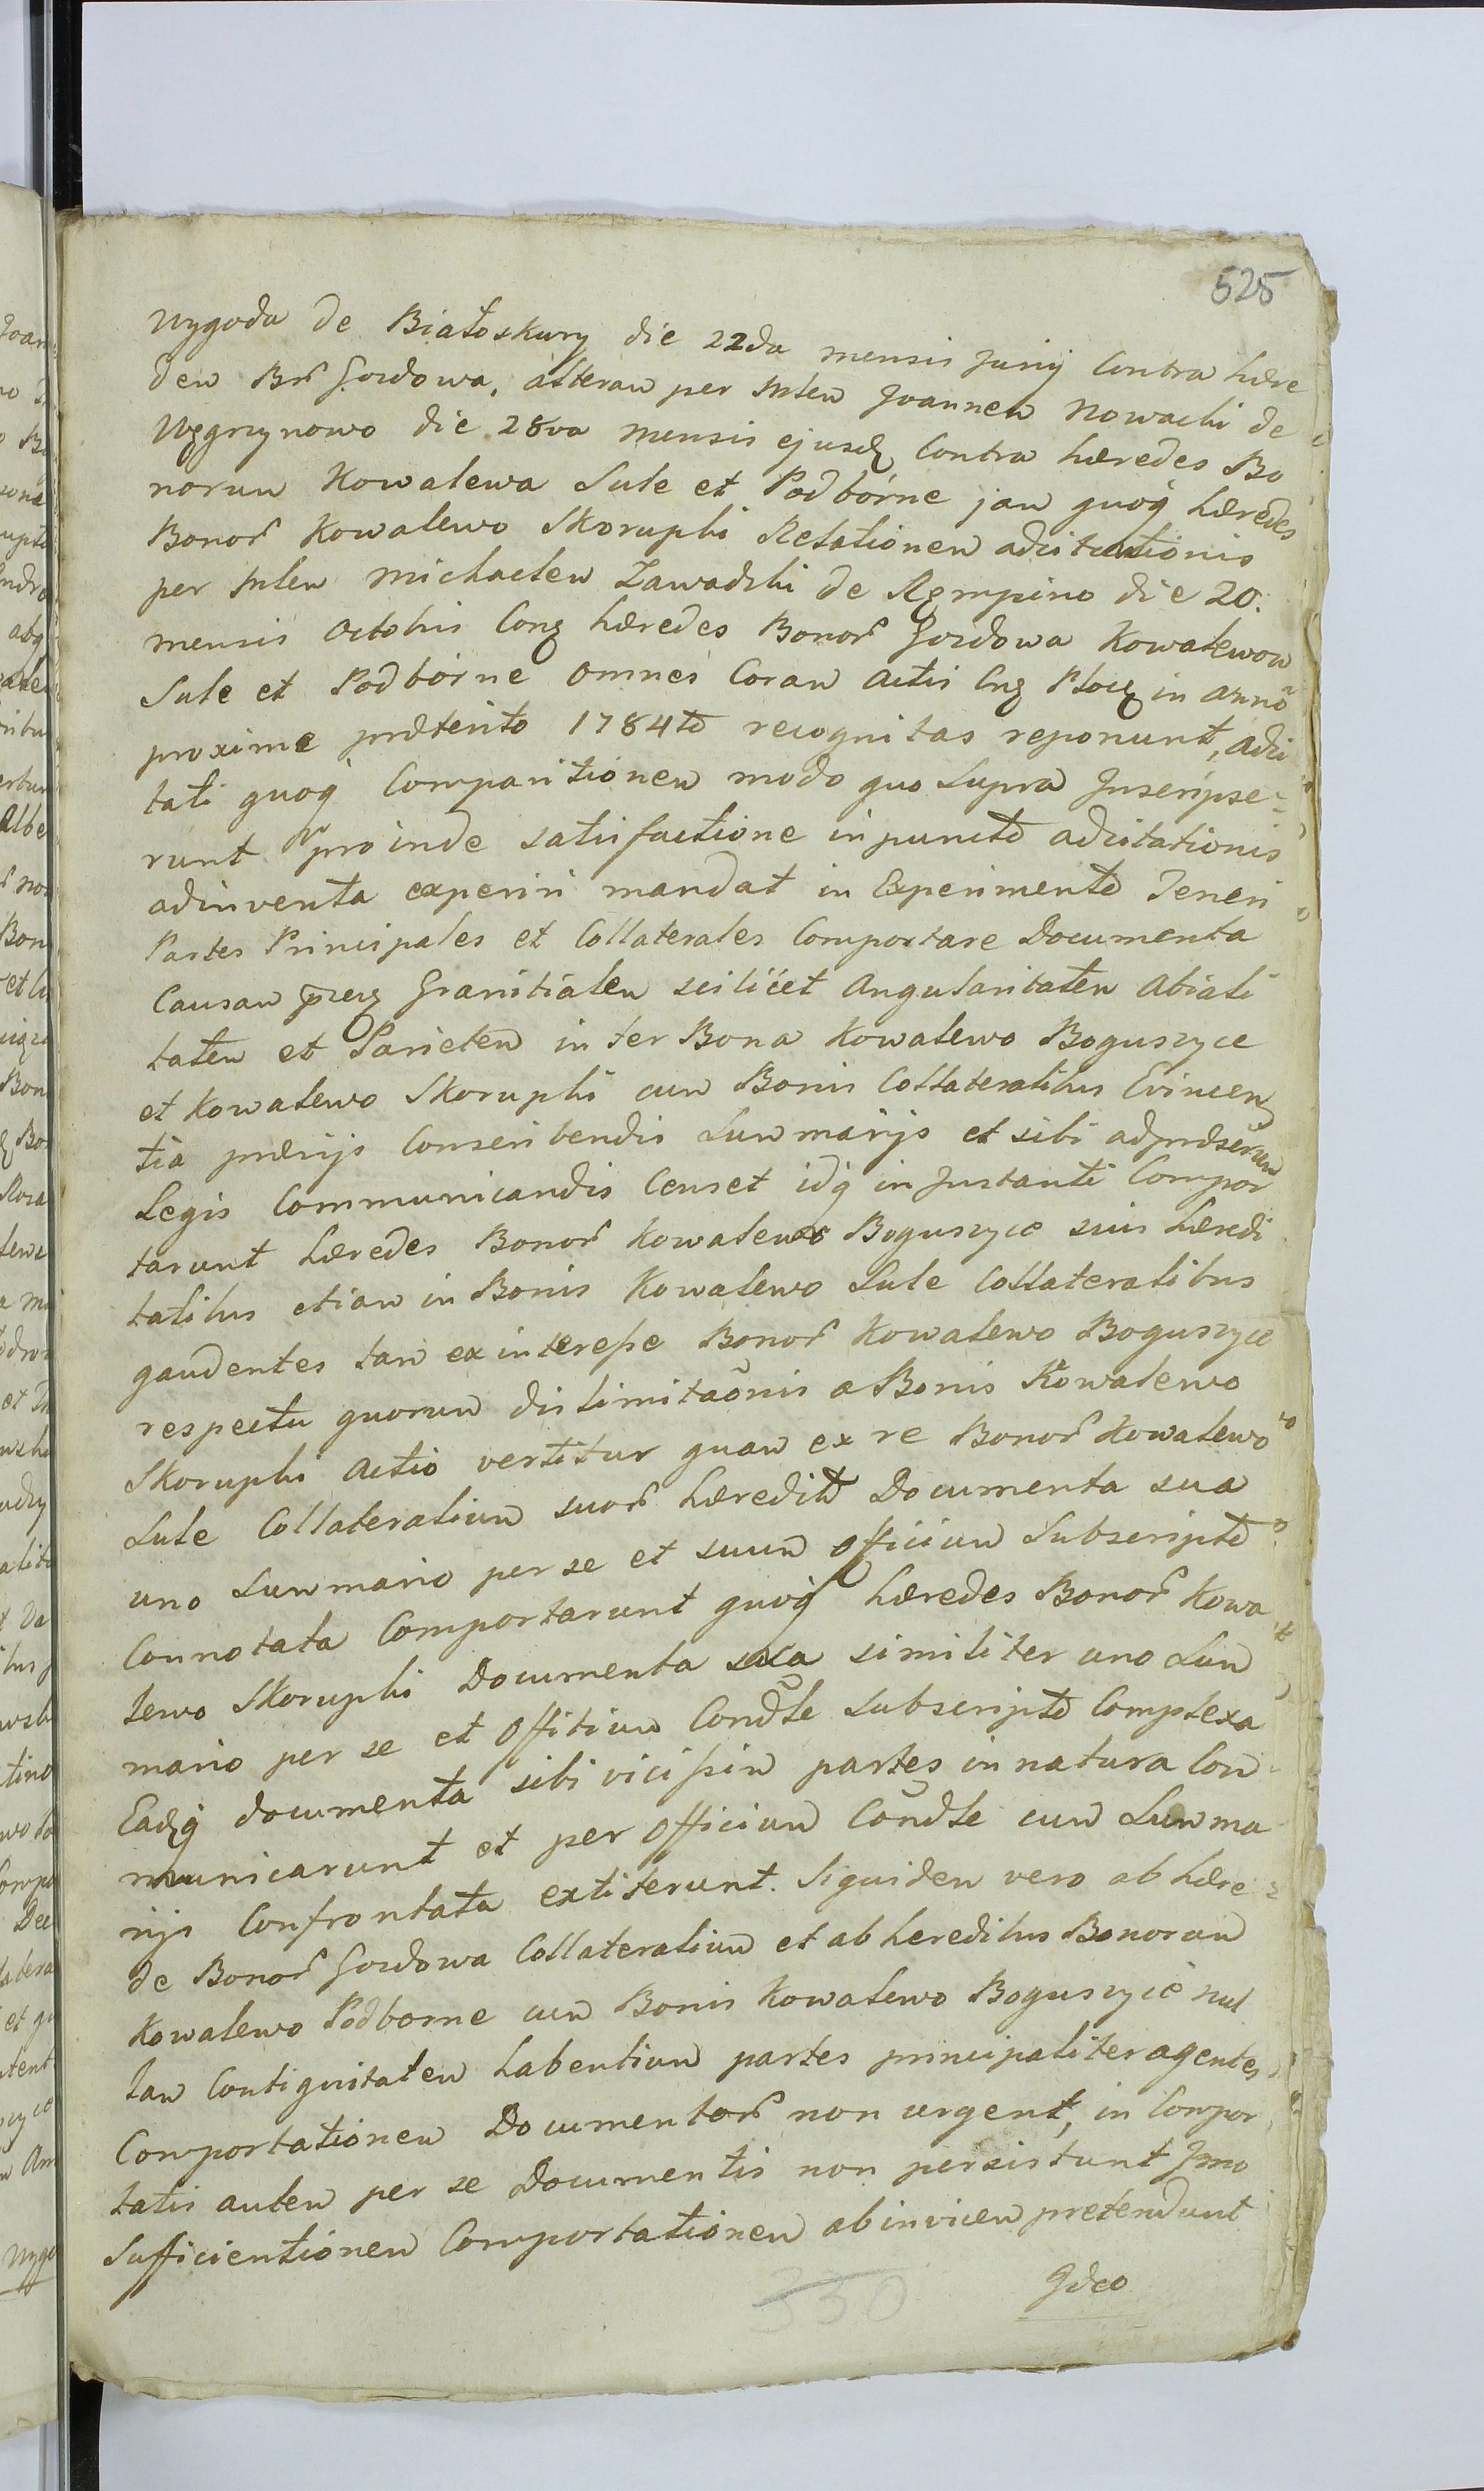 525
Wygoda de Białoskury die 22da mensis Junij Contra hære
dem Br Gozdowa, alteram per Mtem Joannem Nowacki de
Węgrzynowo die 28va mensis ejusd Contra hæredes Bo
norum Kowalewa Sule et Podborne jam quoq hæredes
Bonor Kowalewo Skorupki Relationem adcitationis
per Mtem Michaelem Zawadzki de Rempino die 20.
mensis octobris Conq hæredes Bonor Gozdowa Kowalewow
Sule et Podborne omnes Coram actis Cnq Ploc in anno
proxime præterito 1784to recognitas reponunt, adci
tati quoq Comparitionem modo quo Supra Inscripse=
runt proinde satisfactione in puncto adcitationis
adinventa experiri mandat in Experimento Teneri
Partes Principales et Collaterales Comportare Documenta
Causam præq Granitialem scilicet Angularitatem Abiali
tatem et Parietem inter Bona Kowalewo Boguszyce
et Kowalewo Skorupki cum Bonis Collateralibus Evincen
tia prævijs Conscribendis Summarijs et sibi ad præscrum
Legis Communicandis Censet idq in Instanti Compor
tarunt hæredes Bonor Kowalewo Boguszyce suis hæredi
tatibus etiam in Bonis Kowalewo Sule Collateralibus
gaudentes tam ex interesse Bonor Kowalewo Boguszyce
respectu quorum dislimitaõnis a Bonis Kowalewo
Skorupki Actio vertitur quam ex re Bonor Kowalewo
Sule Collateralium suor hæredit Documenta sua
uno Summario per se et suum officium Subscripto
Connotata Comportarunt quoq hæredes Bonor Kowa
lewo Skorupki Documenta sua similiter uno Sum
mario per se et Officium Condle subscripto Complexa
Eadq documenta sibi vicissim partes in natura Com
municarunt et per Officium Condle cum Summa
rijs Confrontata extiterunt. Siquidem vero ab hære=
de Bonor Gozdowa Collateralium et ab heredibus Bonorum
Kowalewo Podborne cum Bonis Kowalewo Boguszyce nul
lam Contiguitatem habentium partes principaliter agentes
Comportationem Documentor non urgent, in Compor
tatis autem per se Documentis non persistunt Imo
Sufficientionem Comportationem ab invicem pretendunt
Ideo
350